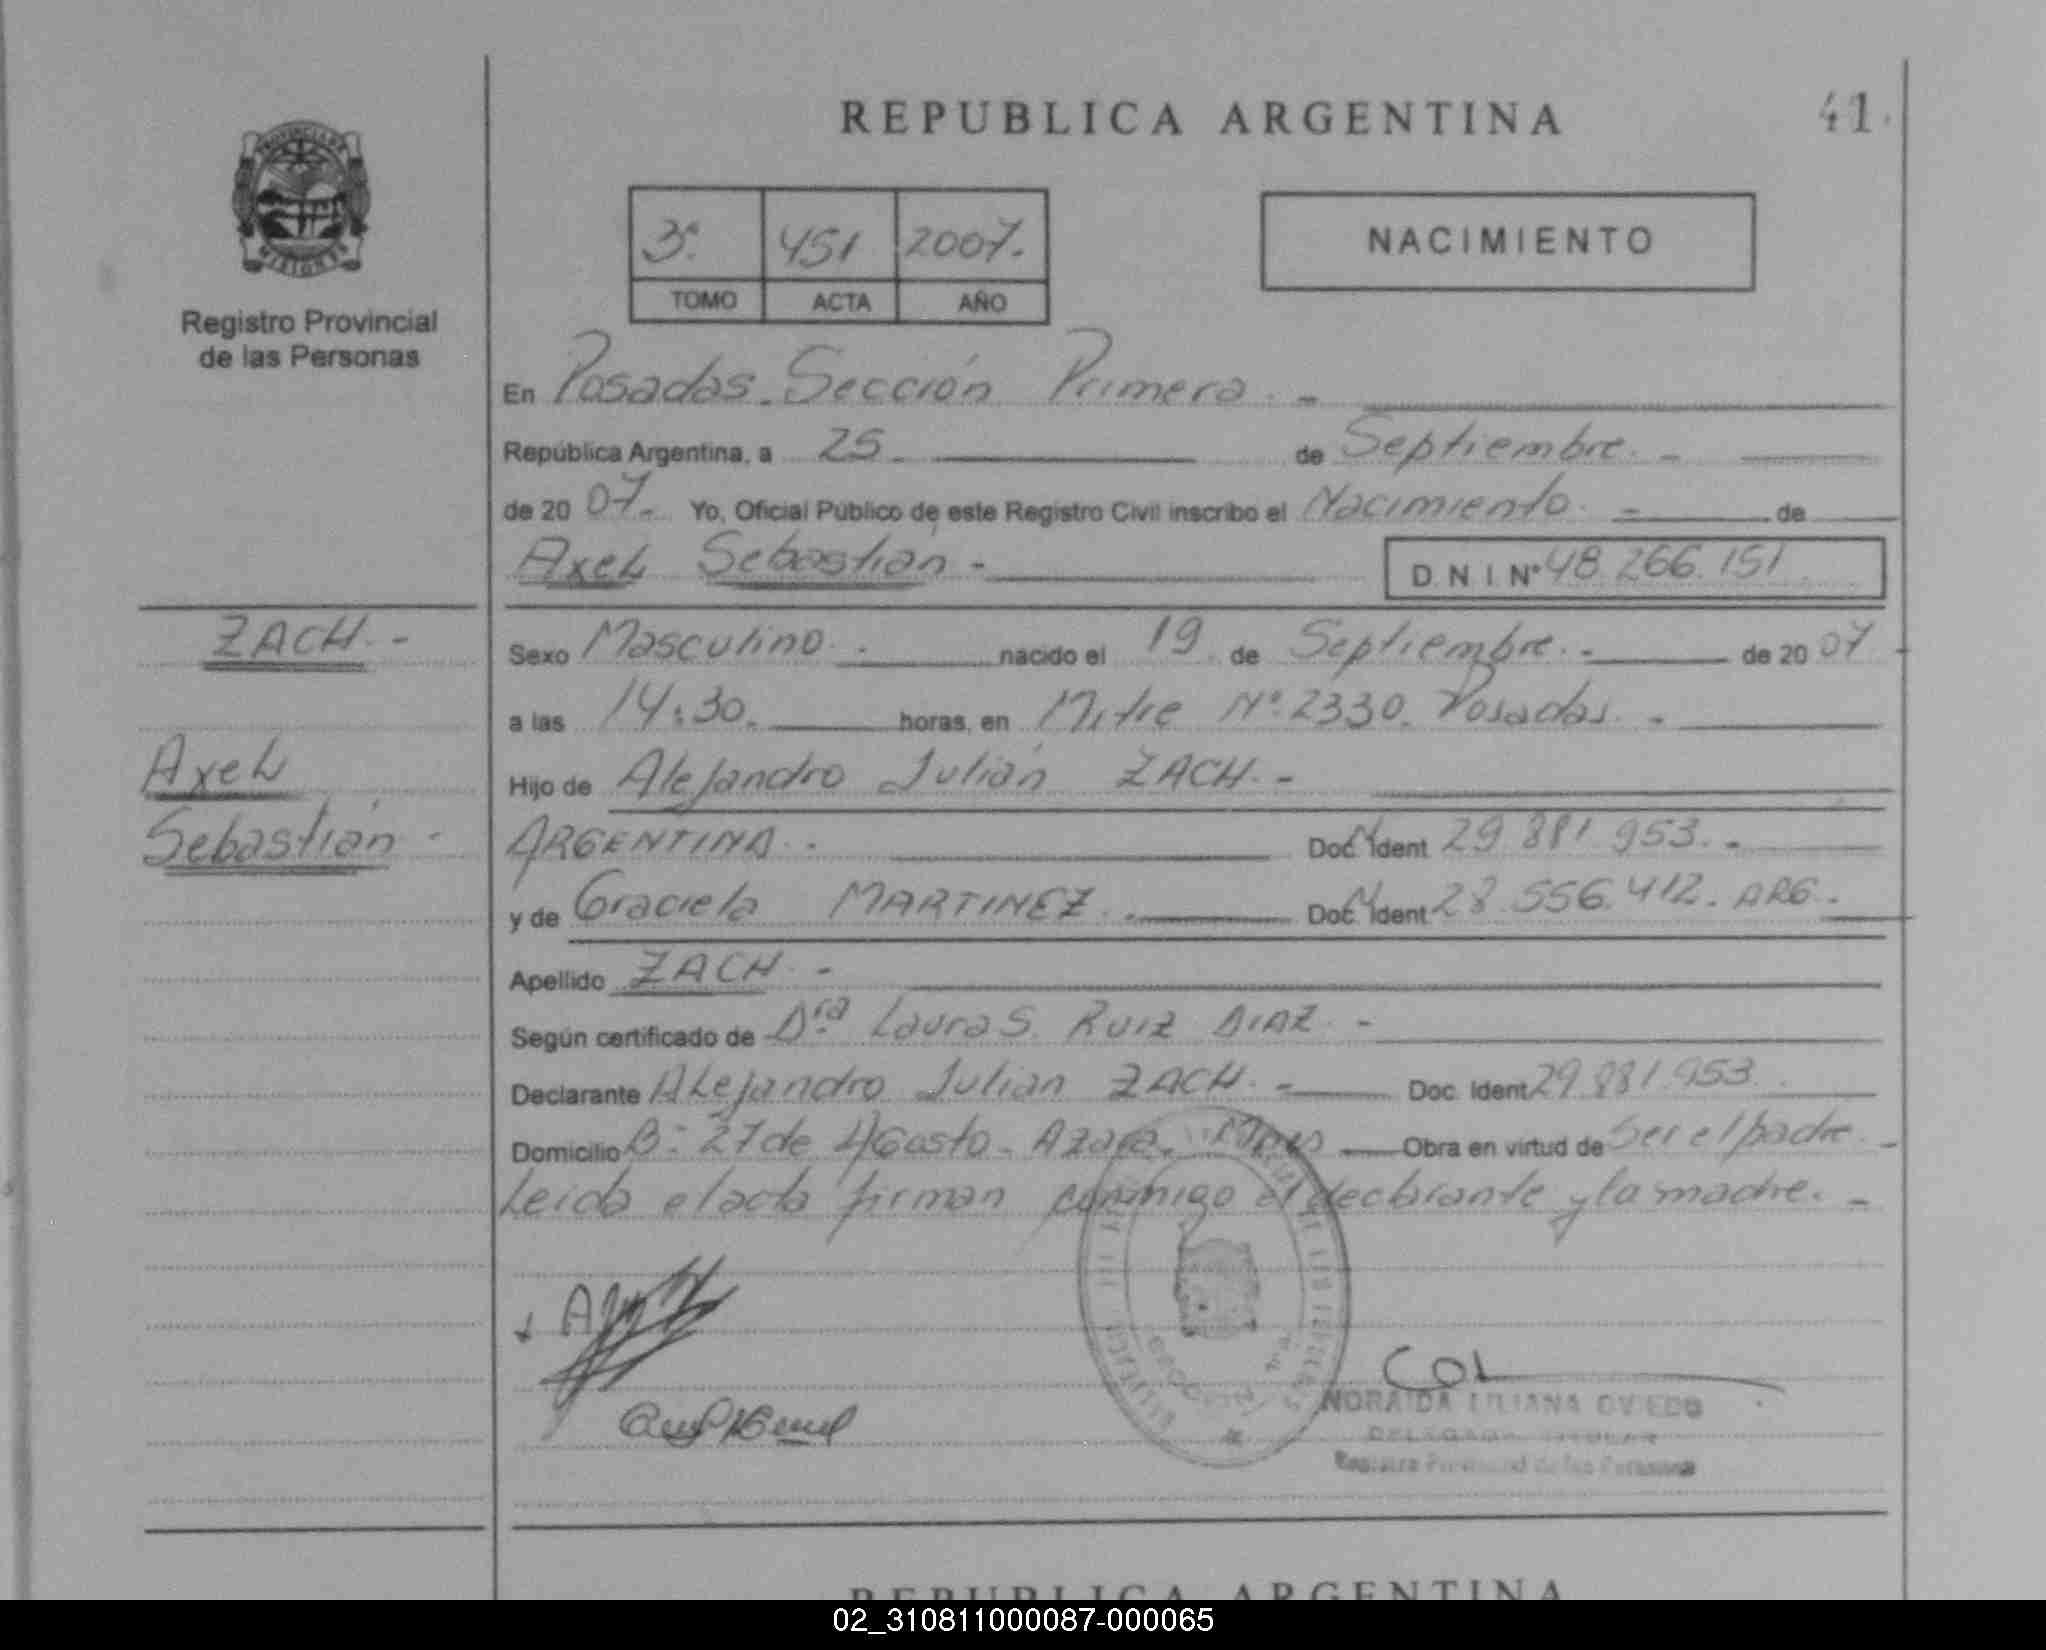 REPUBLICA ARGENTINA
41.
PROVINCIA DE
MISIONES
Registro Provincial
de las Personas
3º. 451 2007.
TOMO ACTA AÑO
NACIMIENTO
En Posadas. Sección Primera. -
República Argentina, a 25. de Septiembre. -
de 20 07. Yo, Oficial Público de este Registro Civil inscribo el Nacimiento. - de
Axel Sebastián - D N I Nº 48.266.151
ZACH. -
Sexo Masculino. nacido el 19 de Septiembre. - de 20 07
a las 14:30. horas, en Mitre Nº 2330. Posadas. -
Axel
Hijo de Alejandro Julián ZACH. -
Sebastián -
ARGENTINA. - Doc. Ident 29.881.953. -
y de Graciela MARTINEZ. - Doc. Ident 28.556.412. ARG. -
Apellido ZACH. -
Según certificado de Dra Laura S. RUIZ DIAZ. -
Declarante Alejandro Julian ZACH. - Doc. Ident 29.881.953.
Domicilio B: 27 de Agosto. Azara. Mnes Obra en virtud de Ser el padre. -
Leida el acta firman conmigo el declarante y la madre. -
NORAIDA LILIANA OVIEDO
DELEGADA TITULAR
Registro Provincial de las Personas
REPUBLICA ARGENTINA
02_310811000087-000065